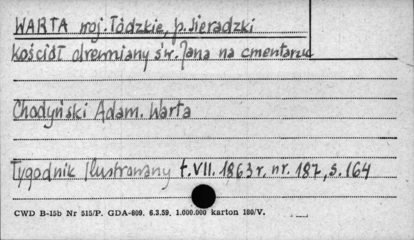 WARTA woj. Łódzkie, p. Sieradzki
Kościół drewniany św. Jana na cmentarzu
Chodyński Adam. Warta
Tygodnik Ilustrowany t. VII. 1863 r. nr. 187, s. 164
CWD B-15b Nr 515/P. GDA-809. 6.3.59. 1.000.000 karton 180/V.